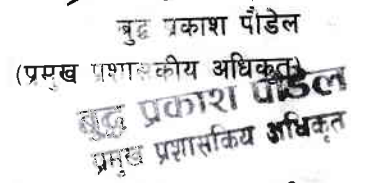 बुद्ध प्रकाश पौडेल
(प्रमुख प्रशासकीय अधिकृत)
बुद्ध प्रकाश पौडेल
प्रमुख प्रशासकिय अधिकृत